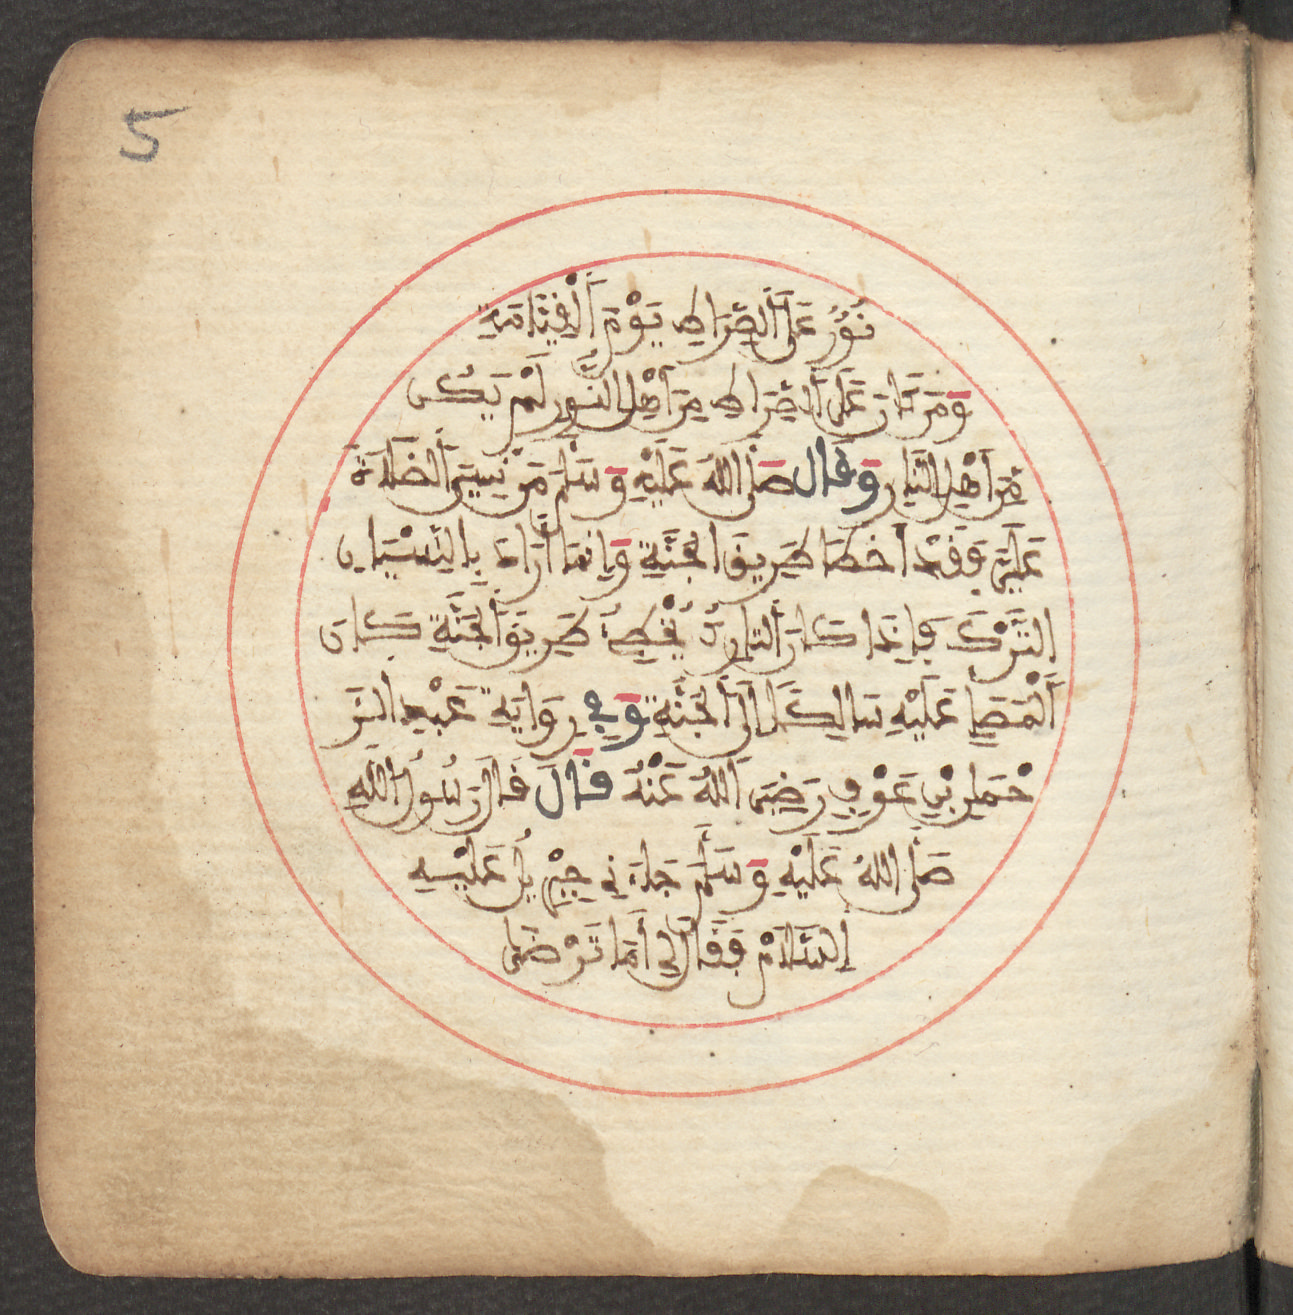 5
نُورٌ عَلَى ألصِّرَاطِ يَوْمَ ألْقِيَٰامَةِ
وَمَن كَانَ عَلَى ألصِّرَاطِ مِنَ أهْلِ النُّورِ لَمْ يَكُن
مِّنَ أهْلِ النَّارِ وَقَال صَلَّى اللهُ عَلَيْهِ وَسَلَّمَ مَنْ نَسِيَ ألصَّلَاةَ
عَلَيَّ فَقَدْ أخطَا طَرِيقَ الجَنَّةِ وَإِنَّمَا أرَادَ بِالنِّسْيَانِ
التَّرْكَ فَإِذَا كَانَ ألتَّارِكُ يُخْطِئُ طَرِيقَ ألجَنَّةِ كَانَ
ألْمُصَلِّي عَلَيْهِ سَالِكًا إلَى ألجَنَّةِ وَفِي رِوَايَةِ عَبْدِ ألرَّ
حْمَٰنِ بْنِ عَوْفٍ رَضِيَ اَللهُ عَنْهُ قَالَ قَالَ رَسُولُ اللهِ
صَلَّى اللهُ عَلَيْهِ وَسَلَّمَ جَاءَنِي جِبْرِيلُ عَلَيْهِ
السَّلَامْ فَقَالَ لِي أمَا تَرْضَى